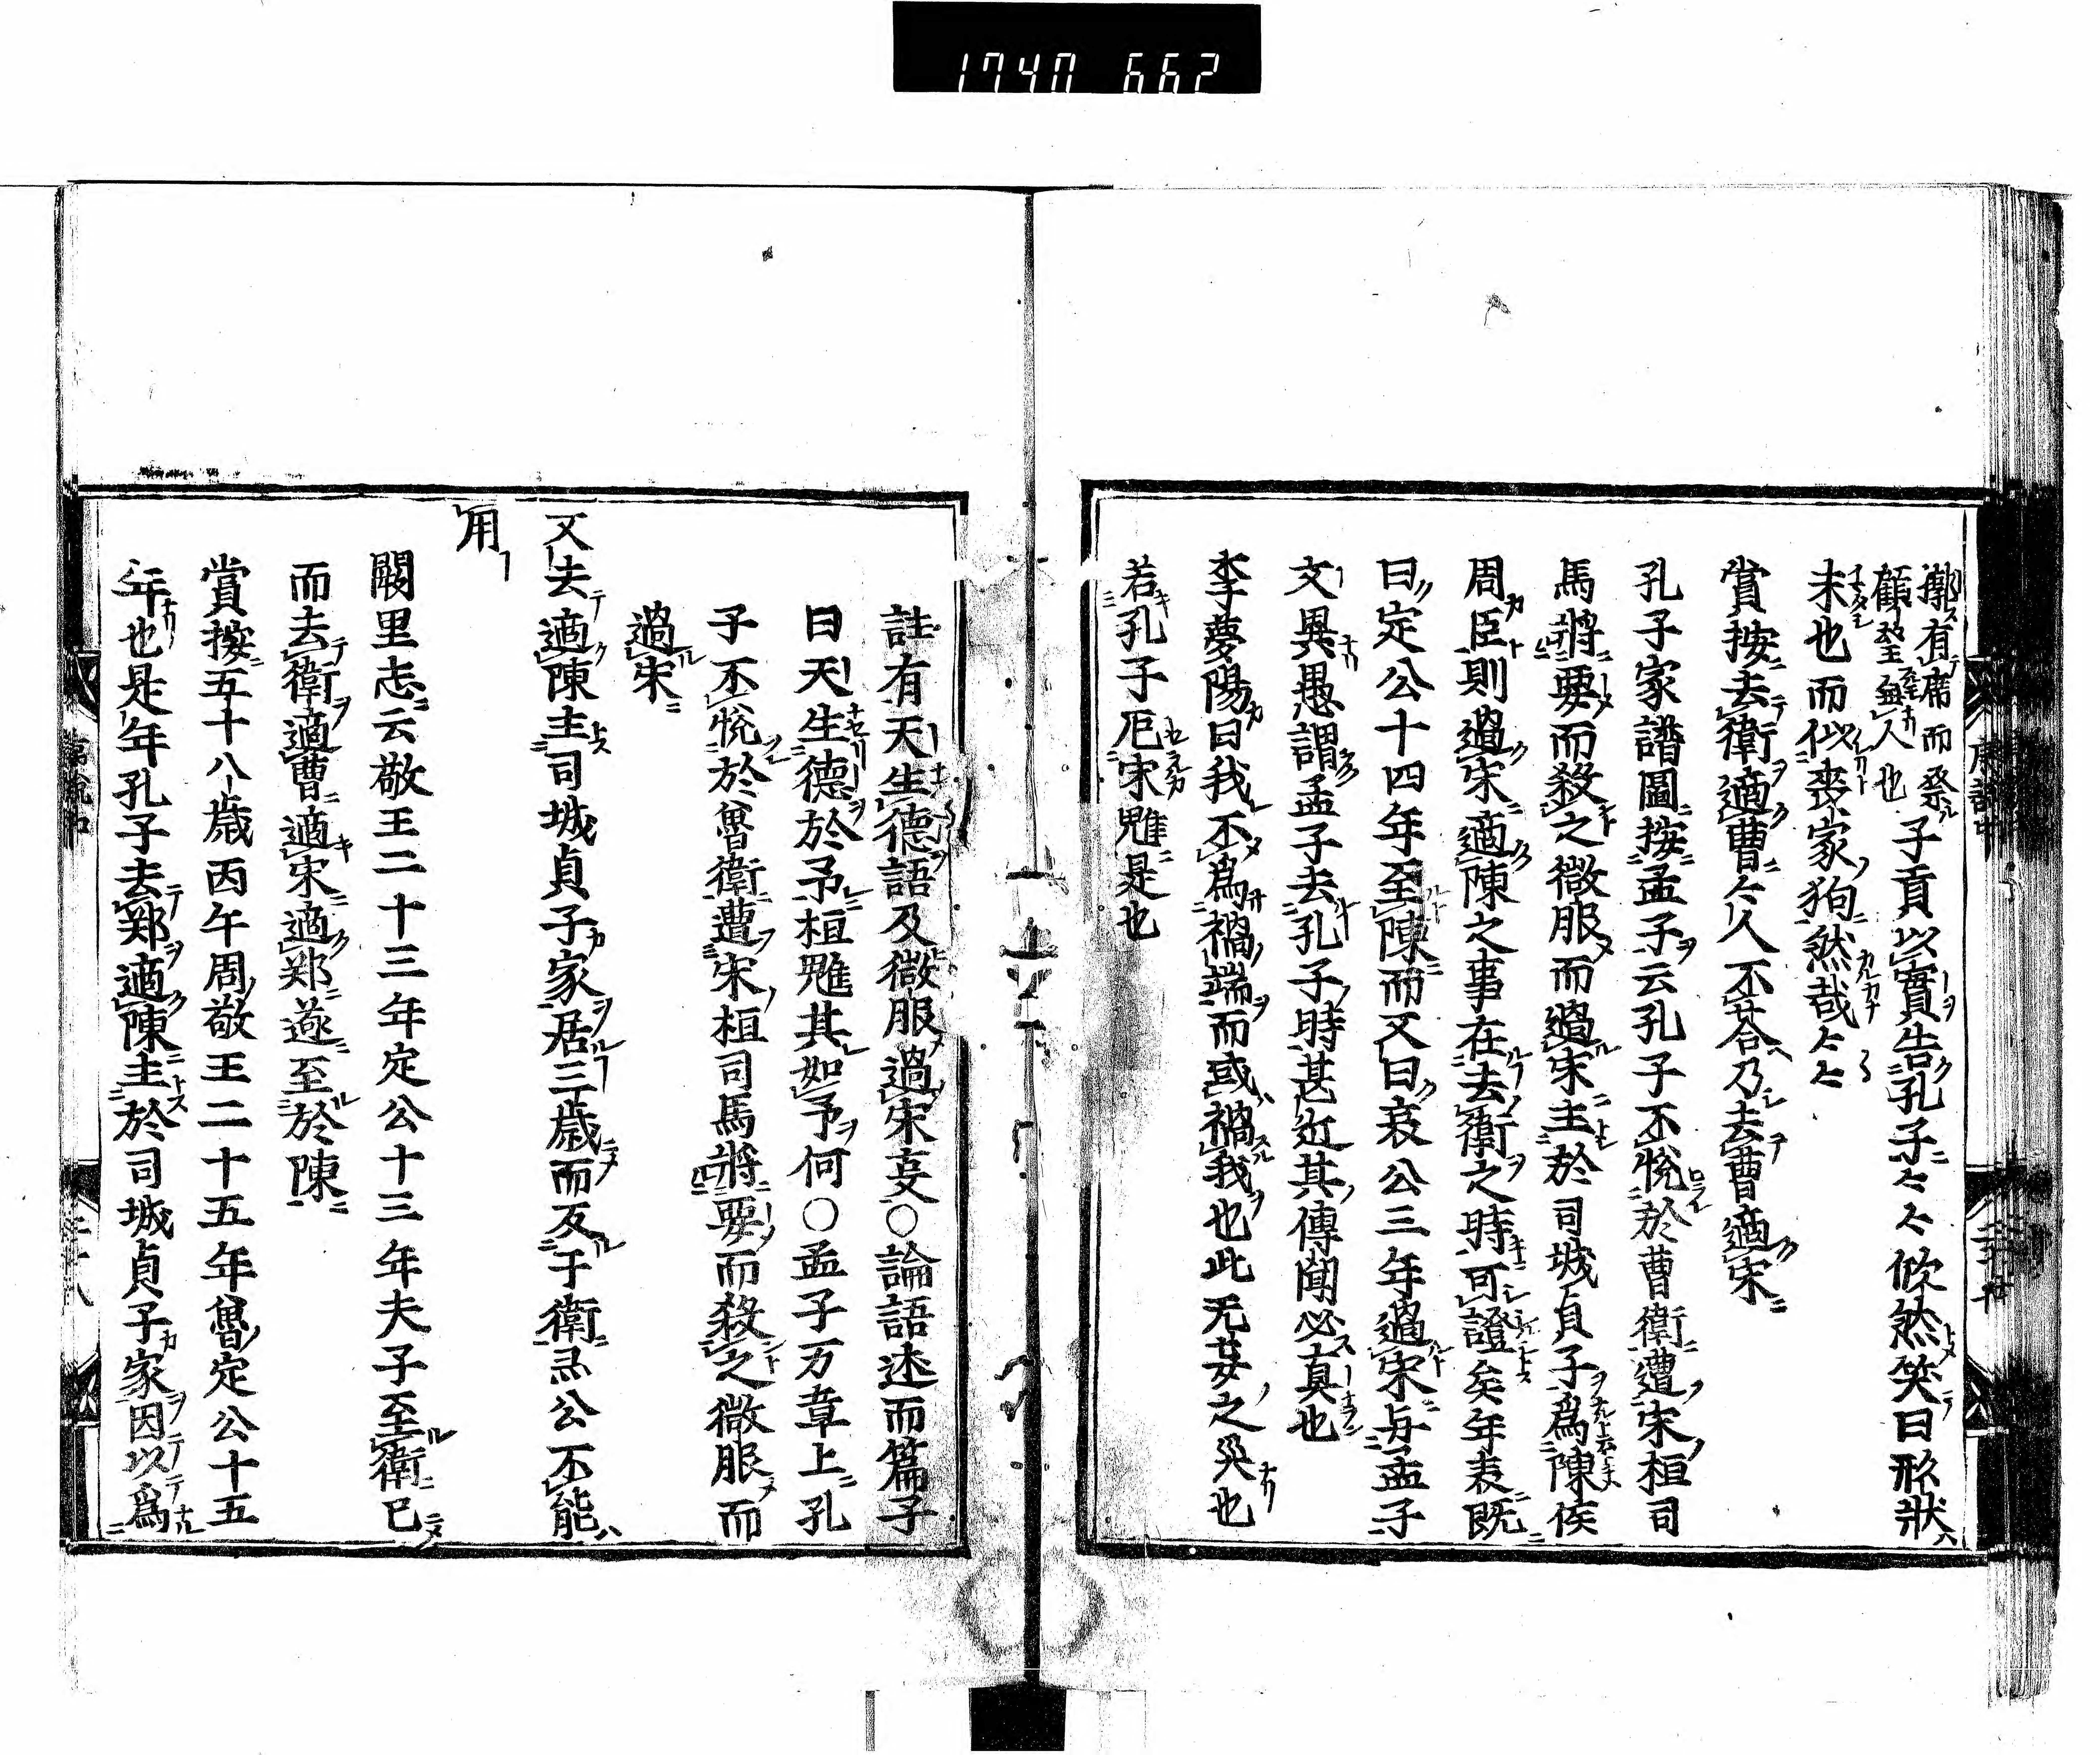 1740 662
槨有席而祭
顧望無人也
子貢以實告孔子々々欣然笑曰形狀
未也而似喪家狗然哉々々
賞按去衛適曹々人不荅乃去曹適宋
孔子家譜圖按孟子云孔子不悅於曹衛遭宋桓司
馬將要而殺之微服而過宋主於司城貞子爲陳侯
周臣則過宋適陳之事在去衛之時可證矣年表既
曰定公十四年至陳而又曰哀公三年過宋与孟子
文異愚謂孟子去孔子時甚近其傳聞必真也
李夢陽曰我不爲禍端而或禍我也此无妄之災也
若孔子厄宋魋是也
註有天生德語及微服過宋
○論語述而篇子
曰天生德於予桓魋其如予何○孟子万章上孔
子不悅於魯衛遭宋桓司馬將要而殺之微服而
過宋
又去適陳主司城貞子家居三歲而反于衛灵公不能
用
闕里志云敬王二十三年定公十三年夫子至衛已
而去衛適曹適宋適郑遂至於陳
賞按五十八歲丙午周敬王二十五年魯定公十五
年也是年孔子去郑適陳主於司城貞子家因以爲
二十八